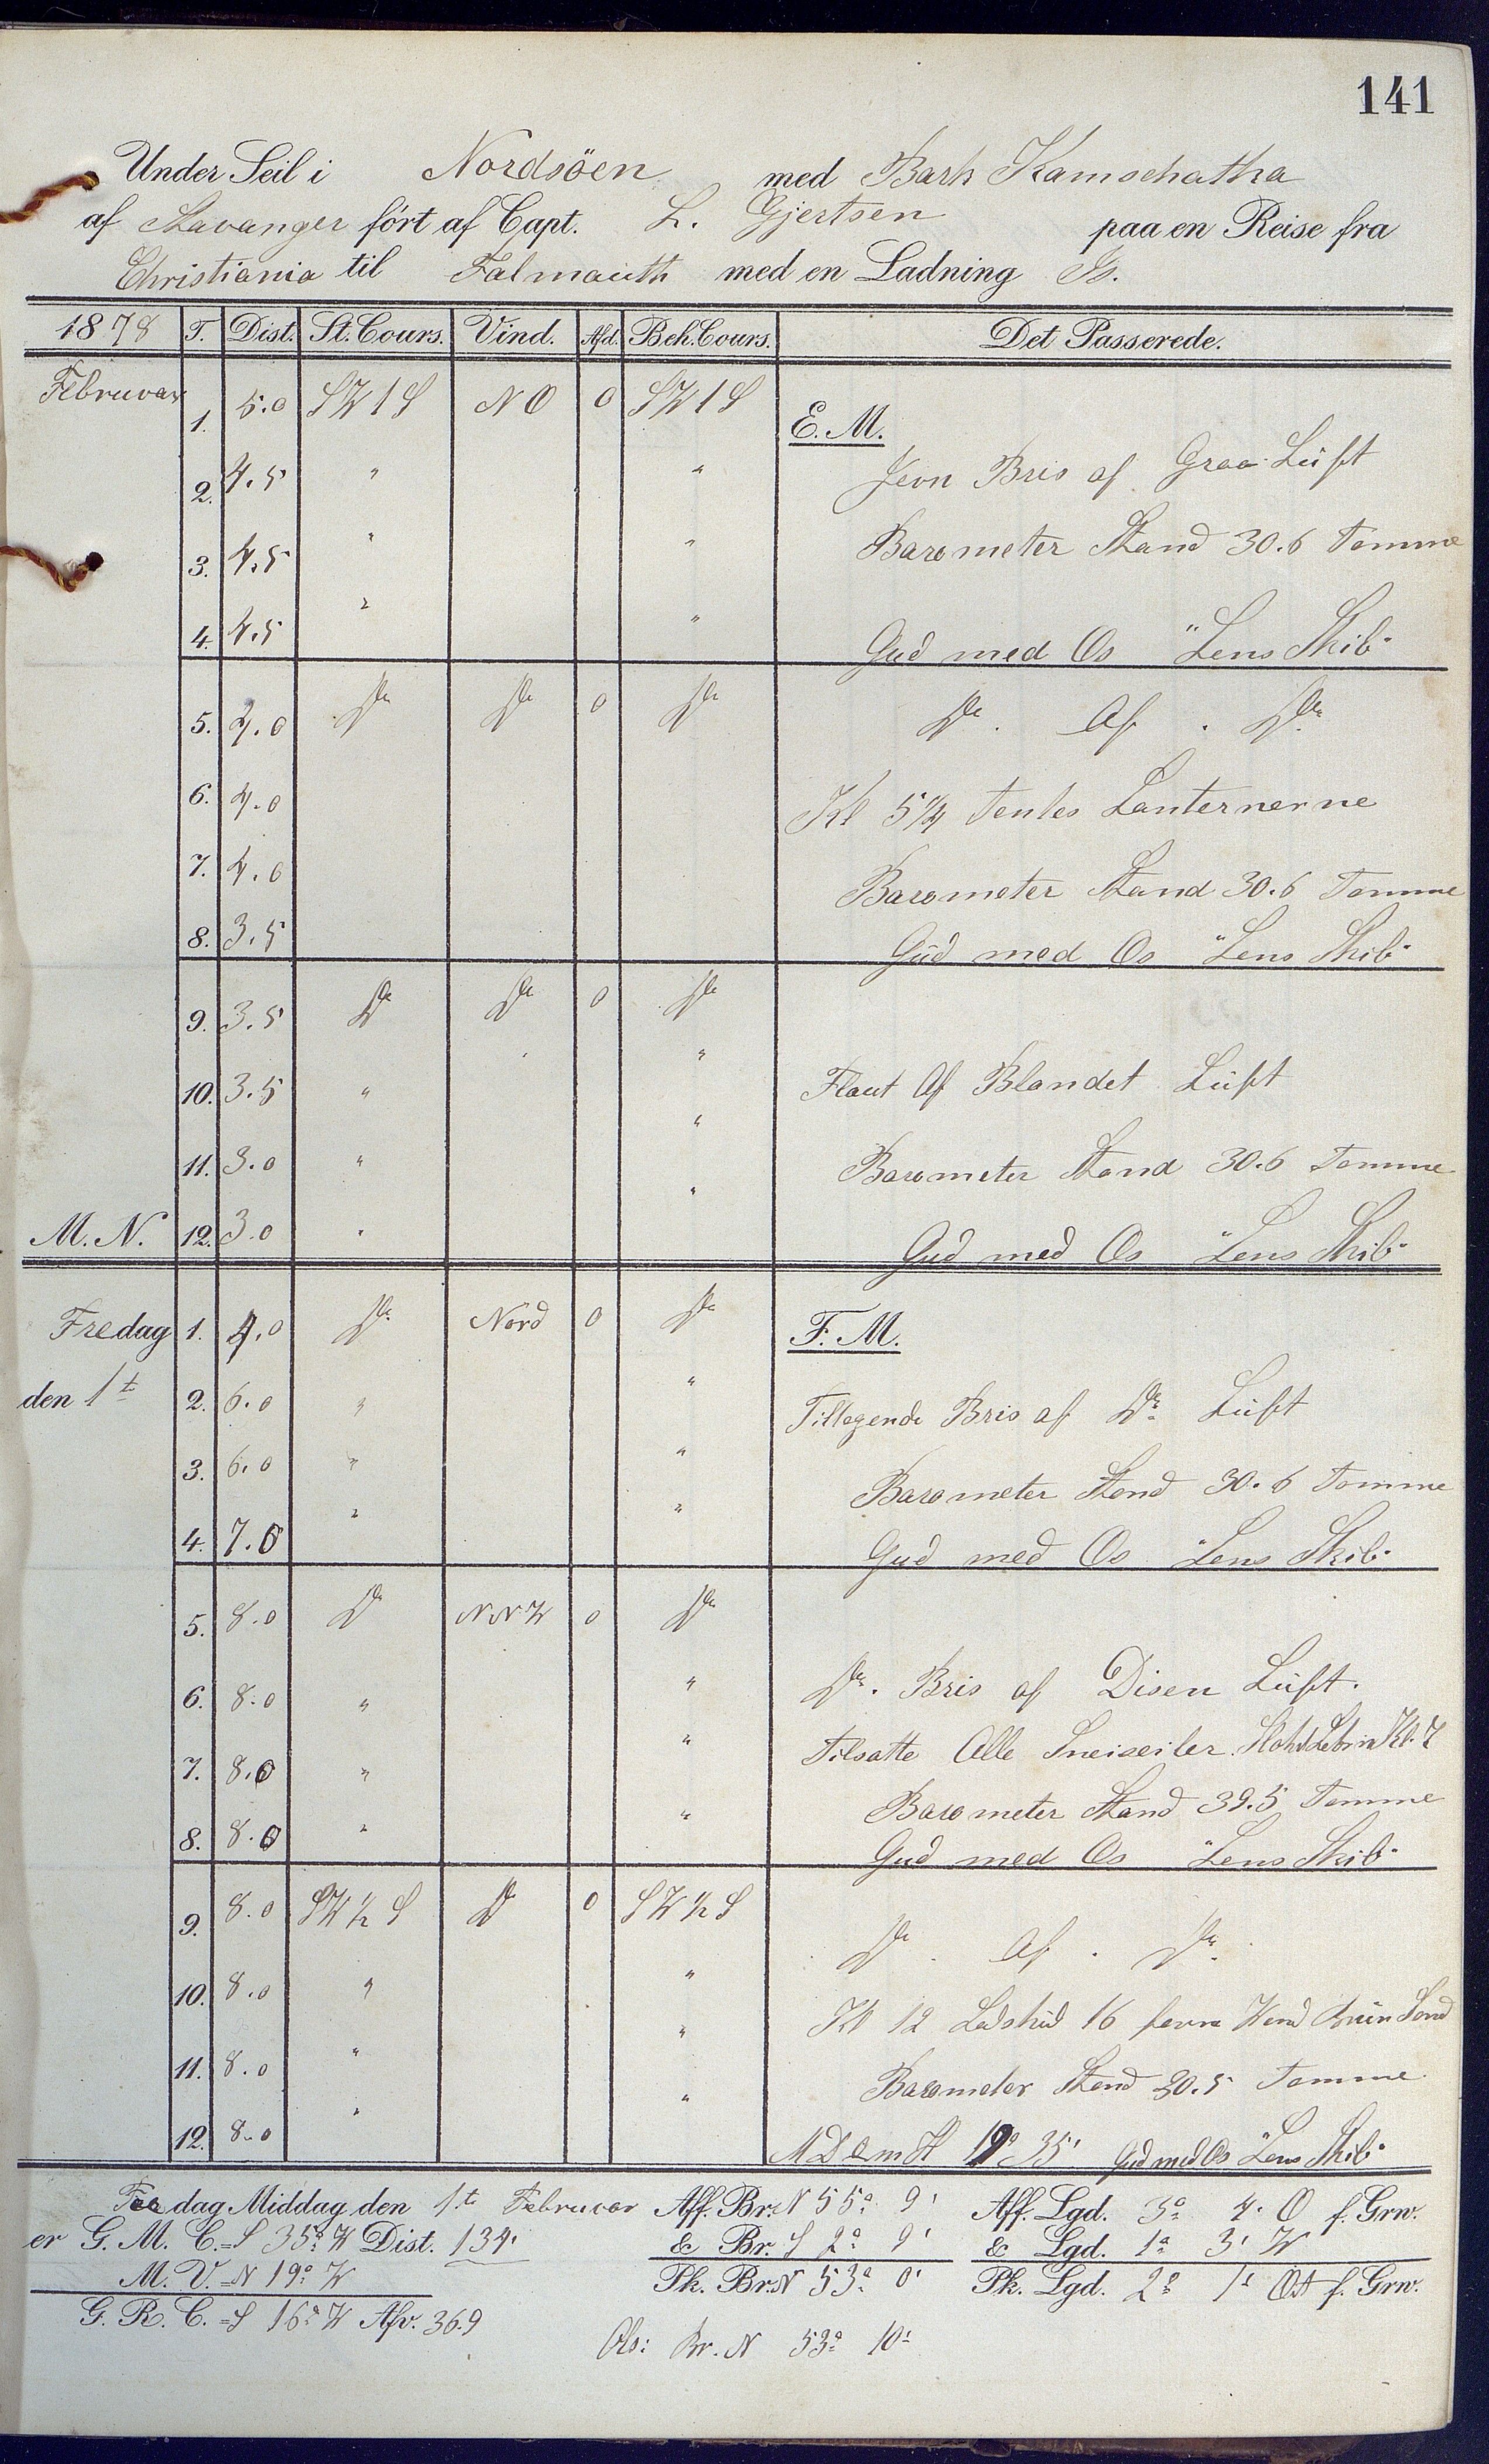 141
Under Seil i Nordsöen med Bark Kamschatka
af Stavanger fört af Capt. L. Gjertsen paa en Reise fra
Christiania til Falmouth med en Ladning Is.
1878 T. Dist. St. Cours. Vind. Afd. Beh. Cours. Det Passerede.
Februar 1. 5.0 SW 1 S NO 0 SW 1 S E. M.
2. 4.5 " " Jevn Bris af Graa Lüft
3. 4.5 " " Barometer Stand 30.6 Tomme
4. 4.5 " " Gud med Os "Lens Skib"
5. 4.0 Do Do 0 Do Do. Af. Do.
6. 4.0 Kl 5 1/4 tentes Lanternerne
7. 4.0 Barometer Stand 30.6 Tomme
8. 3.5 Gud med Os "Lens Skib"
9. 3.5 Do Do 0 Do
10. 3.5 " " " Flaut Af Blandet Lüft
11. 3.0 " " Barometer Stand 30.6 Tomme
M. N. 12. 3.0 " " Gud med Os "Lens Skib"
Fredag 1. 4.0 Do Nord 0 Do F. M.
den 1t 2. 6.0 " " Tillagende Bris af Do Lüft
3. 6.0 " " Barometer Stand 30.6 Tomme
4. 7.0 " " Gud med Os "Lens Skib"
5. 8.0 Do NNW 0 Do
6. 8.0 " " Do. Bris af Disen Lüft.
7. 8.0 " " Tilsatte Alle Kl. 7
Barometer Stand 39.5 Tomme
8. 8.0 " " Gud med Os "Lens Skib"
9. 8.0 SW 1/2 S Do 0 SW 1/2 S Do. Af. Do.
10. 8.0 " " Kl 12 Lodskud 16 favne Sand
11. 8.0 " " Barometer Stand 30.5 Tomme
12. 8.0 " " 19° 35' Gud med Os "Lens Skib"
Fredag Middag den 1.t Februar Aff. Br. N 55° 9' Aff. Lgd. 3° 4' O f. Grw.
er G. M. C. = S 35° W Dist. 134' & Br. S 2° 9' & Lgd. 1° 3' W
M. V. = N 19° W Pk. Br. N 53° 0' Pk. Lgd. 2° 1' Ost f. Grw.
G. R. C. = S 16° W Afv. 36.9
Obs: Br. N 53° 10'